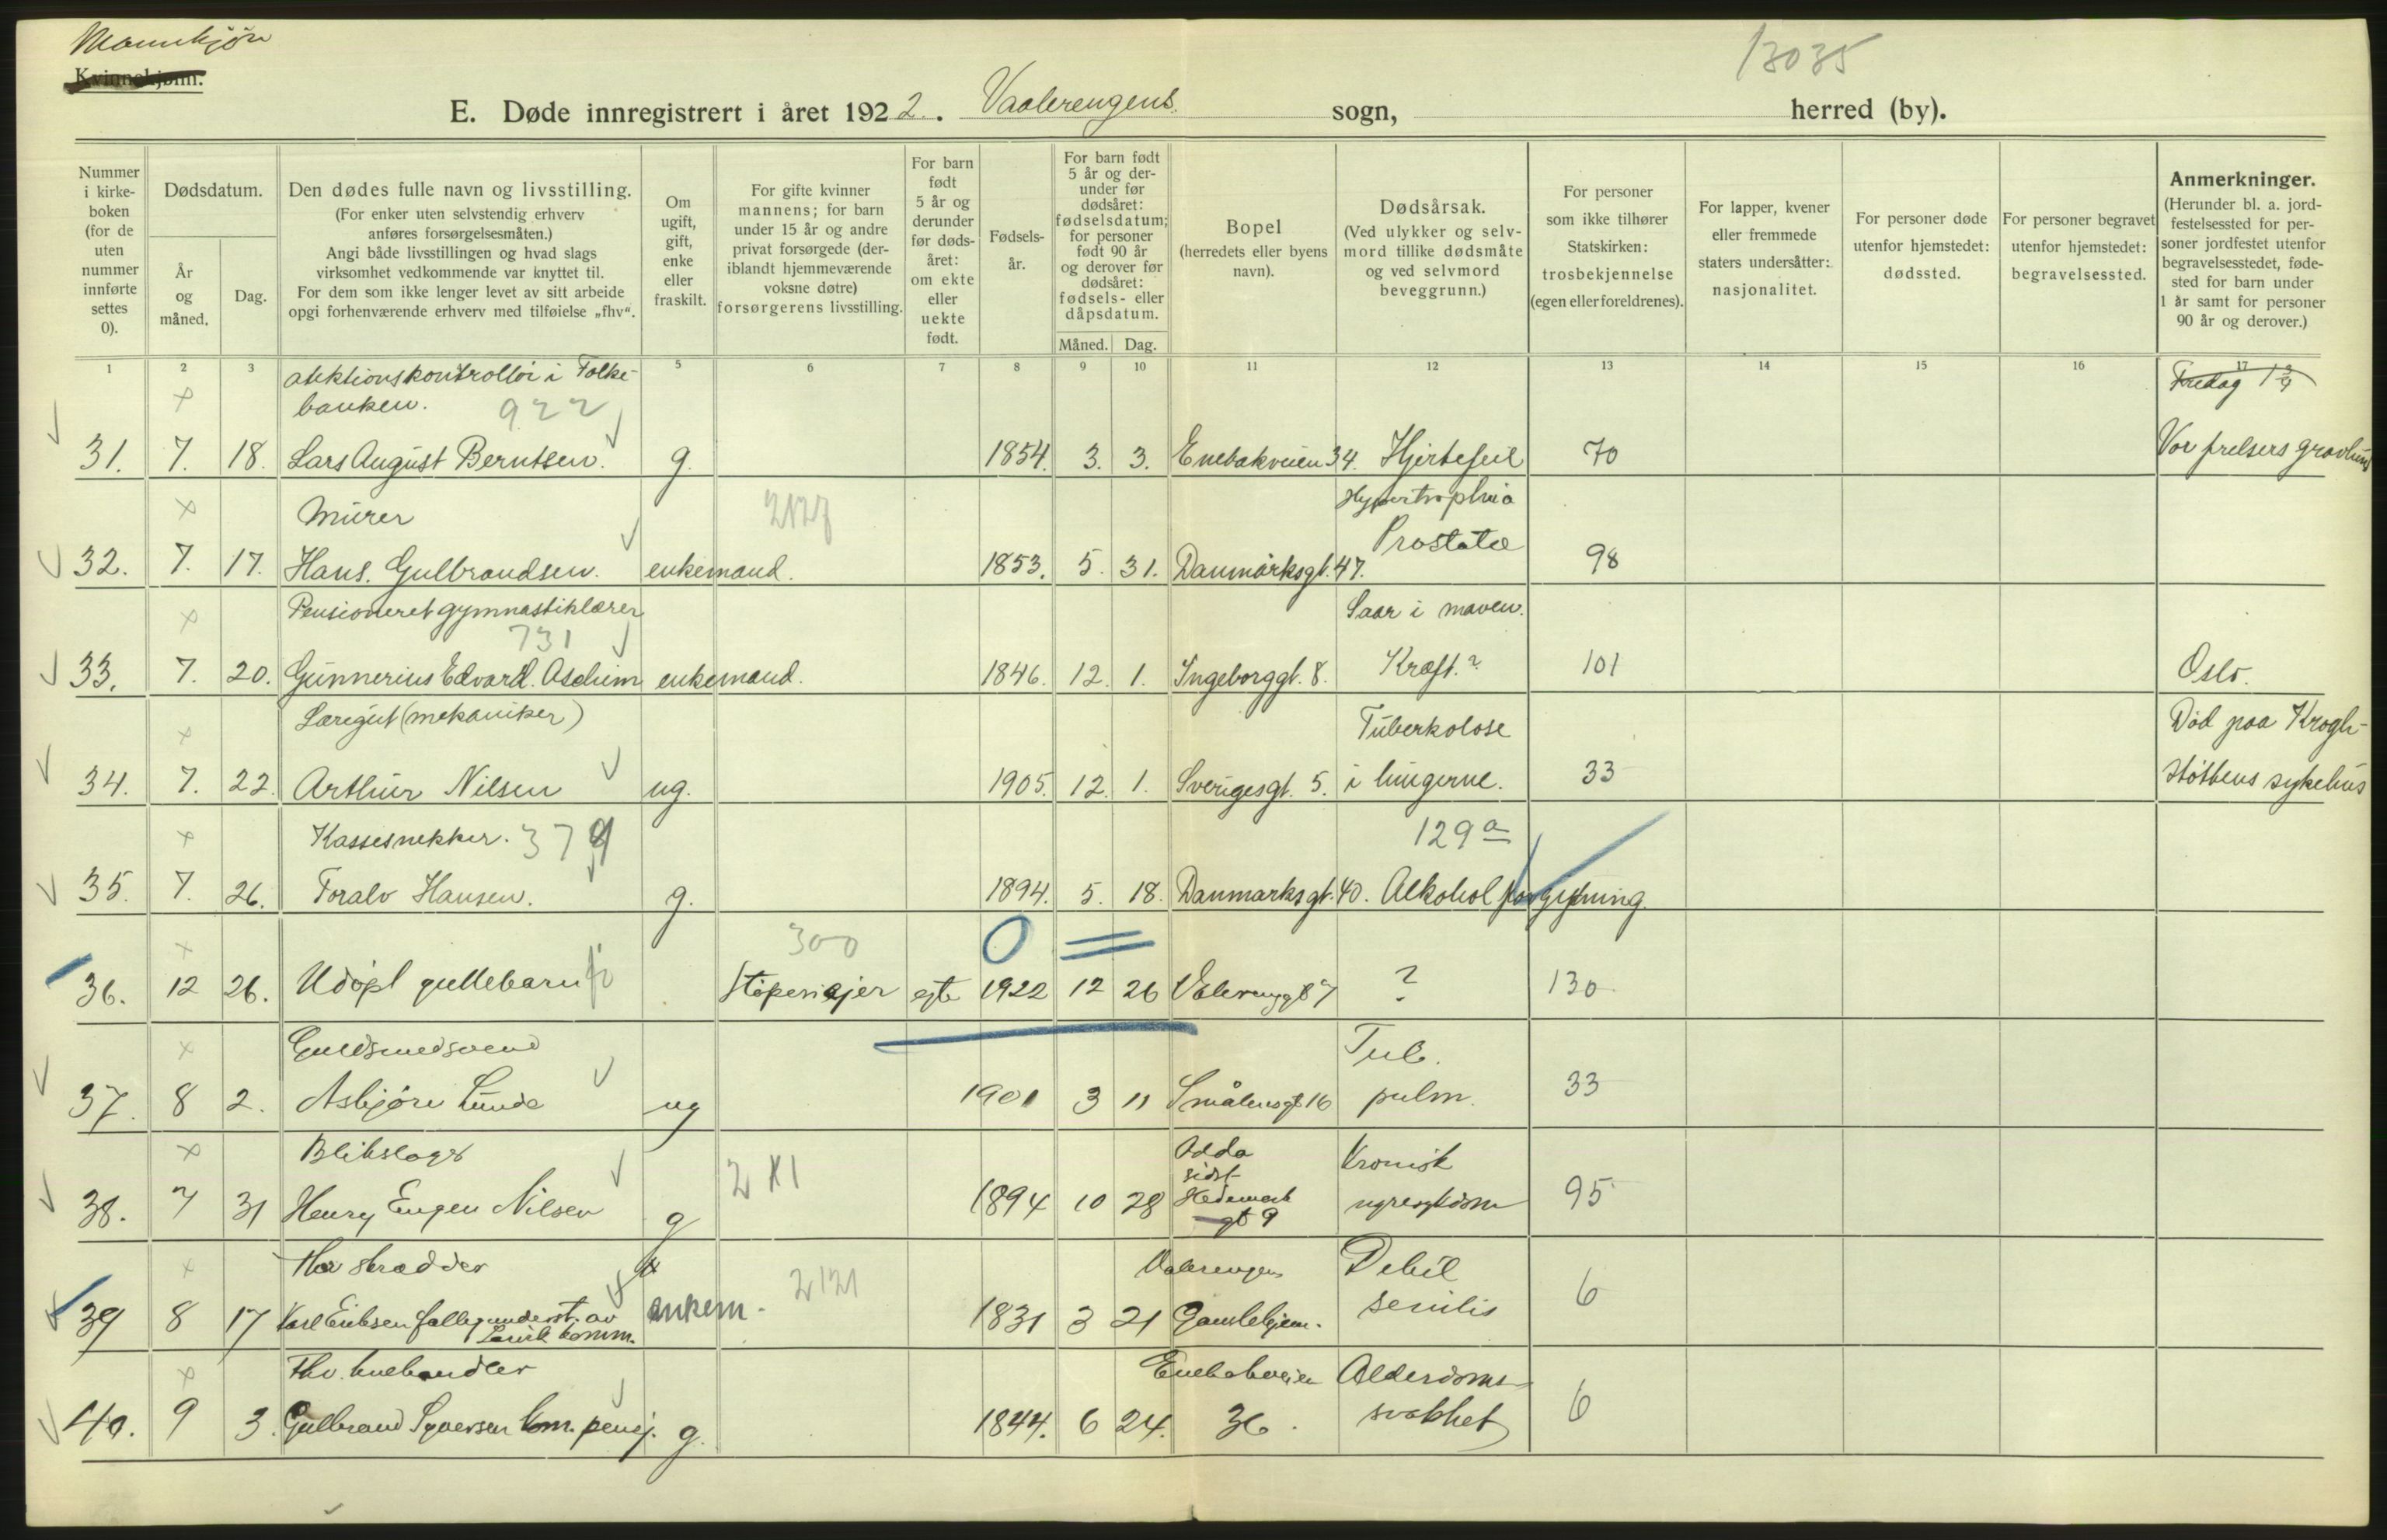 Mannkjøn
Kvinnekjønn.
13035
E. Døde innregistrert i året 1922. Vaalerengens sogn, herred (by).
Nummer i kirke-boken (for de uten nummer innførte settes 0).
Dødsdatum.
År og måned.
Dag.
Den dødes fulle navn og livsstilling.
(For enker uten selvstendig erhverv anføres forsørgelsesmåten.)
Angi både livsstillingen og hvad slags virksomhet vedkommende var knyttet til.
For dem som ikke lenger levet av sitt arbeide opgi forhenværende erhverv med tilføielse „fhv“.
Om ugift, gift, enke eller fraskilt.
For gifte kvinner mannens; for barn under 15 år og andre privat forsørgede (deriblandt hjemmeværende voksne døtre) forsørgerens livsstilling.
For barn født 5 år og derunder før døds-året: om ekte eller uekte født.
Fødsels-år.
For barn født 5 år og der-under før dødsåret: fødselsdatum; for personer født 90 år og derover før dødsåret: fødsels- eller dåpsdatum.
Måned. Dag.
Bopel (herredets eller byens navn).
Dødsårsak.
(Ved ulykker og selv-mord tillike dødsmåte og ved selvmord beveggrunn.)
For personer som ikke tilhører Statskirken: trosbekjennelse (egen eller foreldrenes).
For lapper, kvener eller fremmede staters undersåtter: nasjonalitet.
For personer døde utenfor hjemstedet: dødssted.
For personer begravet utenfor hjemstedet: begravelsessted.
Anmerkninger.
(Herunder bl. a. jord-festelsessted for per-soner jordfestet utenfor begravelsesstedet, føde-sted for barn under 1 år samt for personer 90 år og derover.)
1 2 3 5 6 7 8 9 10 11 12 13 14 15 16 17
Auktionskontrollør i Folke-
banken. 922 Fredag
31. 7. 18. Lars August Berntsen. g. 1854. 3. 3. Enebakveien 34. Hjertefeil 70 Vor frelsers gravlund
Murer 2127 Hypertrophia
32. 7. 17. Hans. Gulbrandsen. enkemand. 1853. 5. 31. Danmarksgt. 47. Prostatæ 98
Pensioneret gymnastiklærer 731 Saar i maven.
33. 7. 20. Gunnerius Edvard. Aschim enkemand. 1846. 12. 1. Ingeborggt. 8. Kræft.? 101 Oslo.
Læregut (mekaniker) Tuberkolose Død paa Krogh-
34. 7. 22. Arthur Nilsen ug. 1905. 12. 1. Sverigesgt. 5. i lungerne. 33 støttens sykehus
Kassesnekker. 379 129 a
35. 7. 26. Toralv Hansen. g. 1894. 5. 18. Danmarksgt. 40. Alkoholforgiftning.
300 0 =
36. 12 26. Udøpt guttebarn Støperiejer egte 1922 12 26 Valerenggt 7 ? 130
Guldsmedsvend Tub.
37. 8 2. Asbjørn Lunde ug 1901 3 11 Smålensgt 16 pulm. 33
Blikslager 2 11 Odda sidst Kronisk
38. 7 31 Henry Eugen Nilsen g 1894 10 28 Hedemark gt 9 nyresykdom 95
Fhv skrædder 2121 Valerengens Debil
39 8 17 Karl Eriksen fattigunderst. av komm. enkem. 1831 3 21 Gamlehjem. senilis 6
Fhv. Enebakveien Alderdoms-
40. 9 3. Gulbrand Syversen kom. pensj. g. 1844. 6 24. 36. svakhet 6